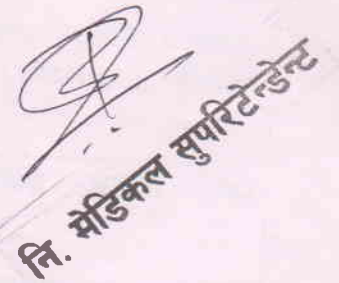 नि. मेडिकल सुपरिटेन्डेन्ट